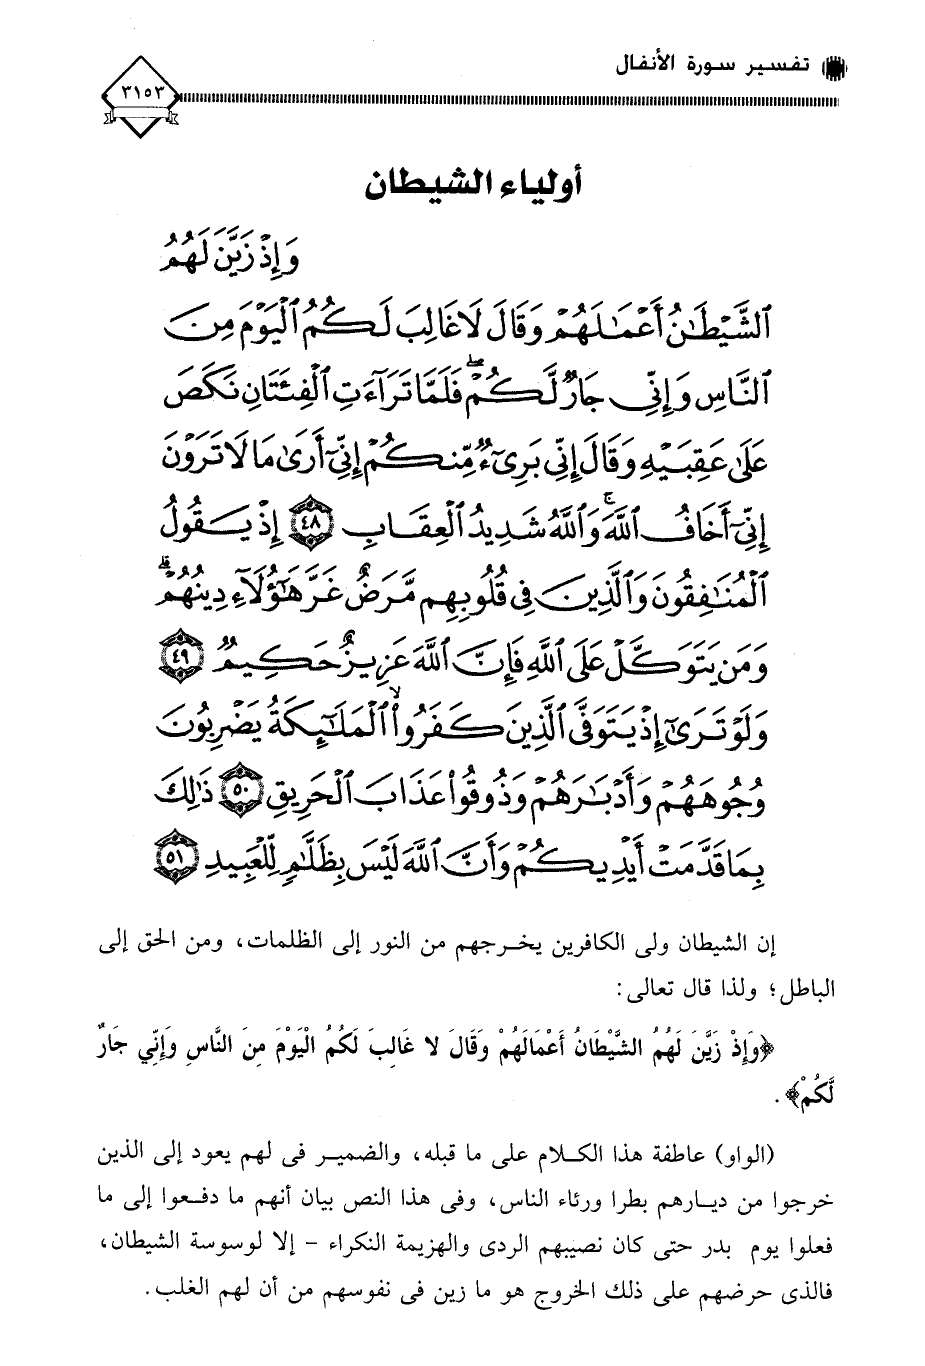 تفسير سورة الأنفال
٣١٥٣
أولياء الشيطان
وَإِذْ زَيَّنَ لَهُمُ
الشَّيْطَٰنُ أَعْمَٰلَهُمْ وَقَالَ لَا غَالِبَ لَكُمُ الْيَوْمَ مِنَ
النَّاسِ وَإِنِّي جَارٌ لَّكُمْ ۖ فَلَمَّا تَرَآءَتِ الْفِئَتَانِ نَكَصَ
عَلَىٰ عَقِبَيْهِ وَقَالَ إِنِّي بَرِىٓءٌ مِّنكُمْ إِنِّىٓ أَرَىٰ مَا لَا تَرَوْنَ
إِنِّىٓ أَخَافُ اللَّهَ ۚ وَاللَّهُ شَدِيدُ الْعِقَابِ ٤٨ إِذْ يَقُولُ
الْمُنَٰفِقُونَ وَالَّذِينَ فِي قُلُوبِهِم مَّرَضٌ غَرَّ هَٰٓؤُلَآءِ دِينُهُمْ ۗ
وَمَن يَتَوَكَّلْ عَلَى اللَّهِ فَإِنَّ اللَّهَ عَزِيزٌ حَكِيمٌ ٤٩
وَلَوْ تَرَىٰٓ إِذْ يَتَوَفَّى الَّذِينَ كَفَرُوا ۙ الْمَلَٰٓئِكَةُ يَضْرِبُونَ
وُجُوهَهُمْ وَأَدْبَٰرَهُمْ وَذُوقُوا عَذَابَ الْحَرِيقِ ٥٠ ذَٰلِكَ
بِمَا قَدَّمَتْ أَيْدِيكُمْ وَأَنَّ اللَّهَ لَيْسَ بِظَلَّٰمٍ لِّلْعَبِيدِ ٥١
إن الشيطان ولى الكافرين يخرجهم من النور إلى الظلمات، ومن الحق إلى
الباطل؛ ولذا قال تعالى:
﴿وَإِذْ زَيَّنَ لَهُمُ الشَّيْطَانُ أَعْمَالَهُمْ وَقَالَ لا غَالِبَ لَكُمُ الْيَوْمَ مِنَ النَّاسِ وَإِنِّي جَارٌ
لَّكُمْ﴾ .
(الواو) عاطفة هذا الكلام على ما قبله، والضمير فى لهم يعود إلى الذين
خرجوا من ديارهم بطرا ورئاء الناس، وفى هذا النص بيان أنهم ما دفعوا إلى ما
فعلوا يوم بدر حتى كان نصيبهم الردى والهزيمة النكراء - إلا لوسوسة الشيطان،
فالذى حرضهم على ذلك الخروج هو ما زين فى نفوسهم من أن لهم الغلب.